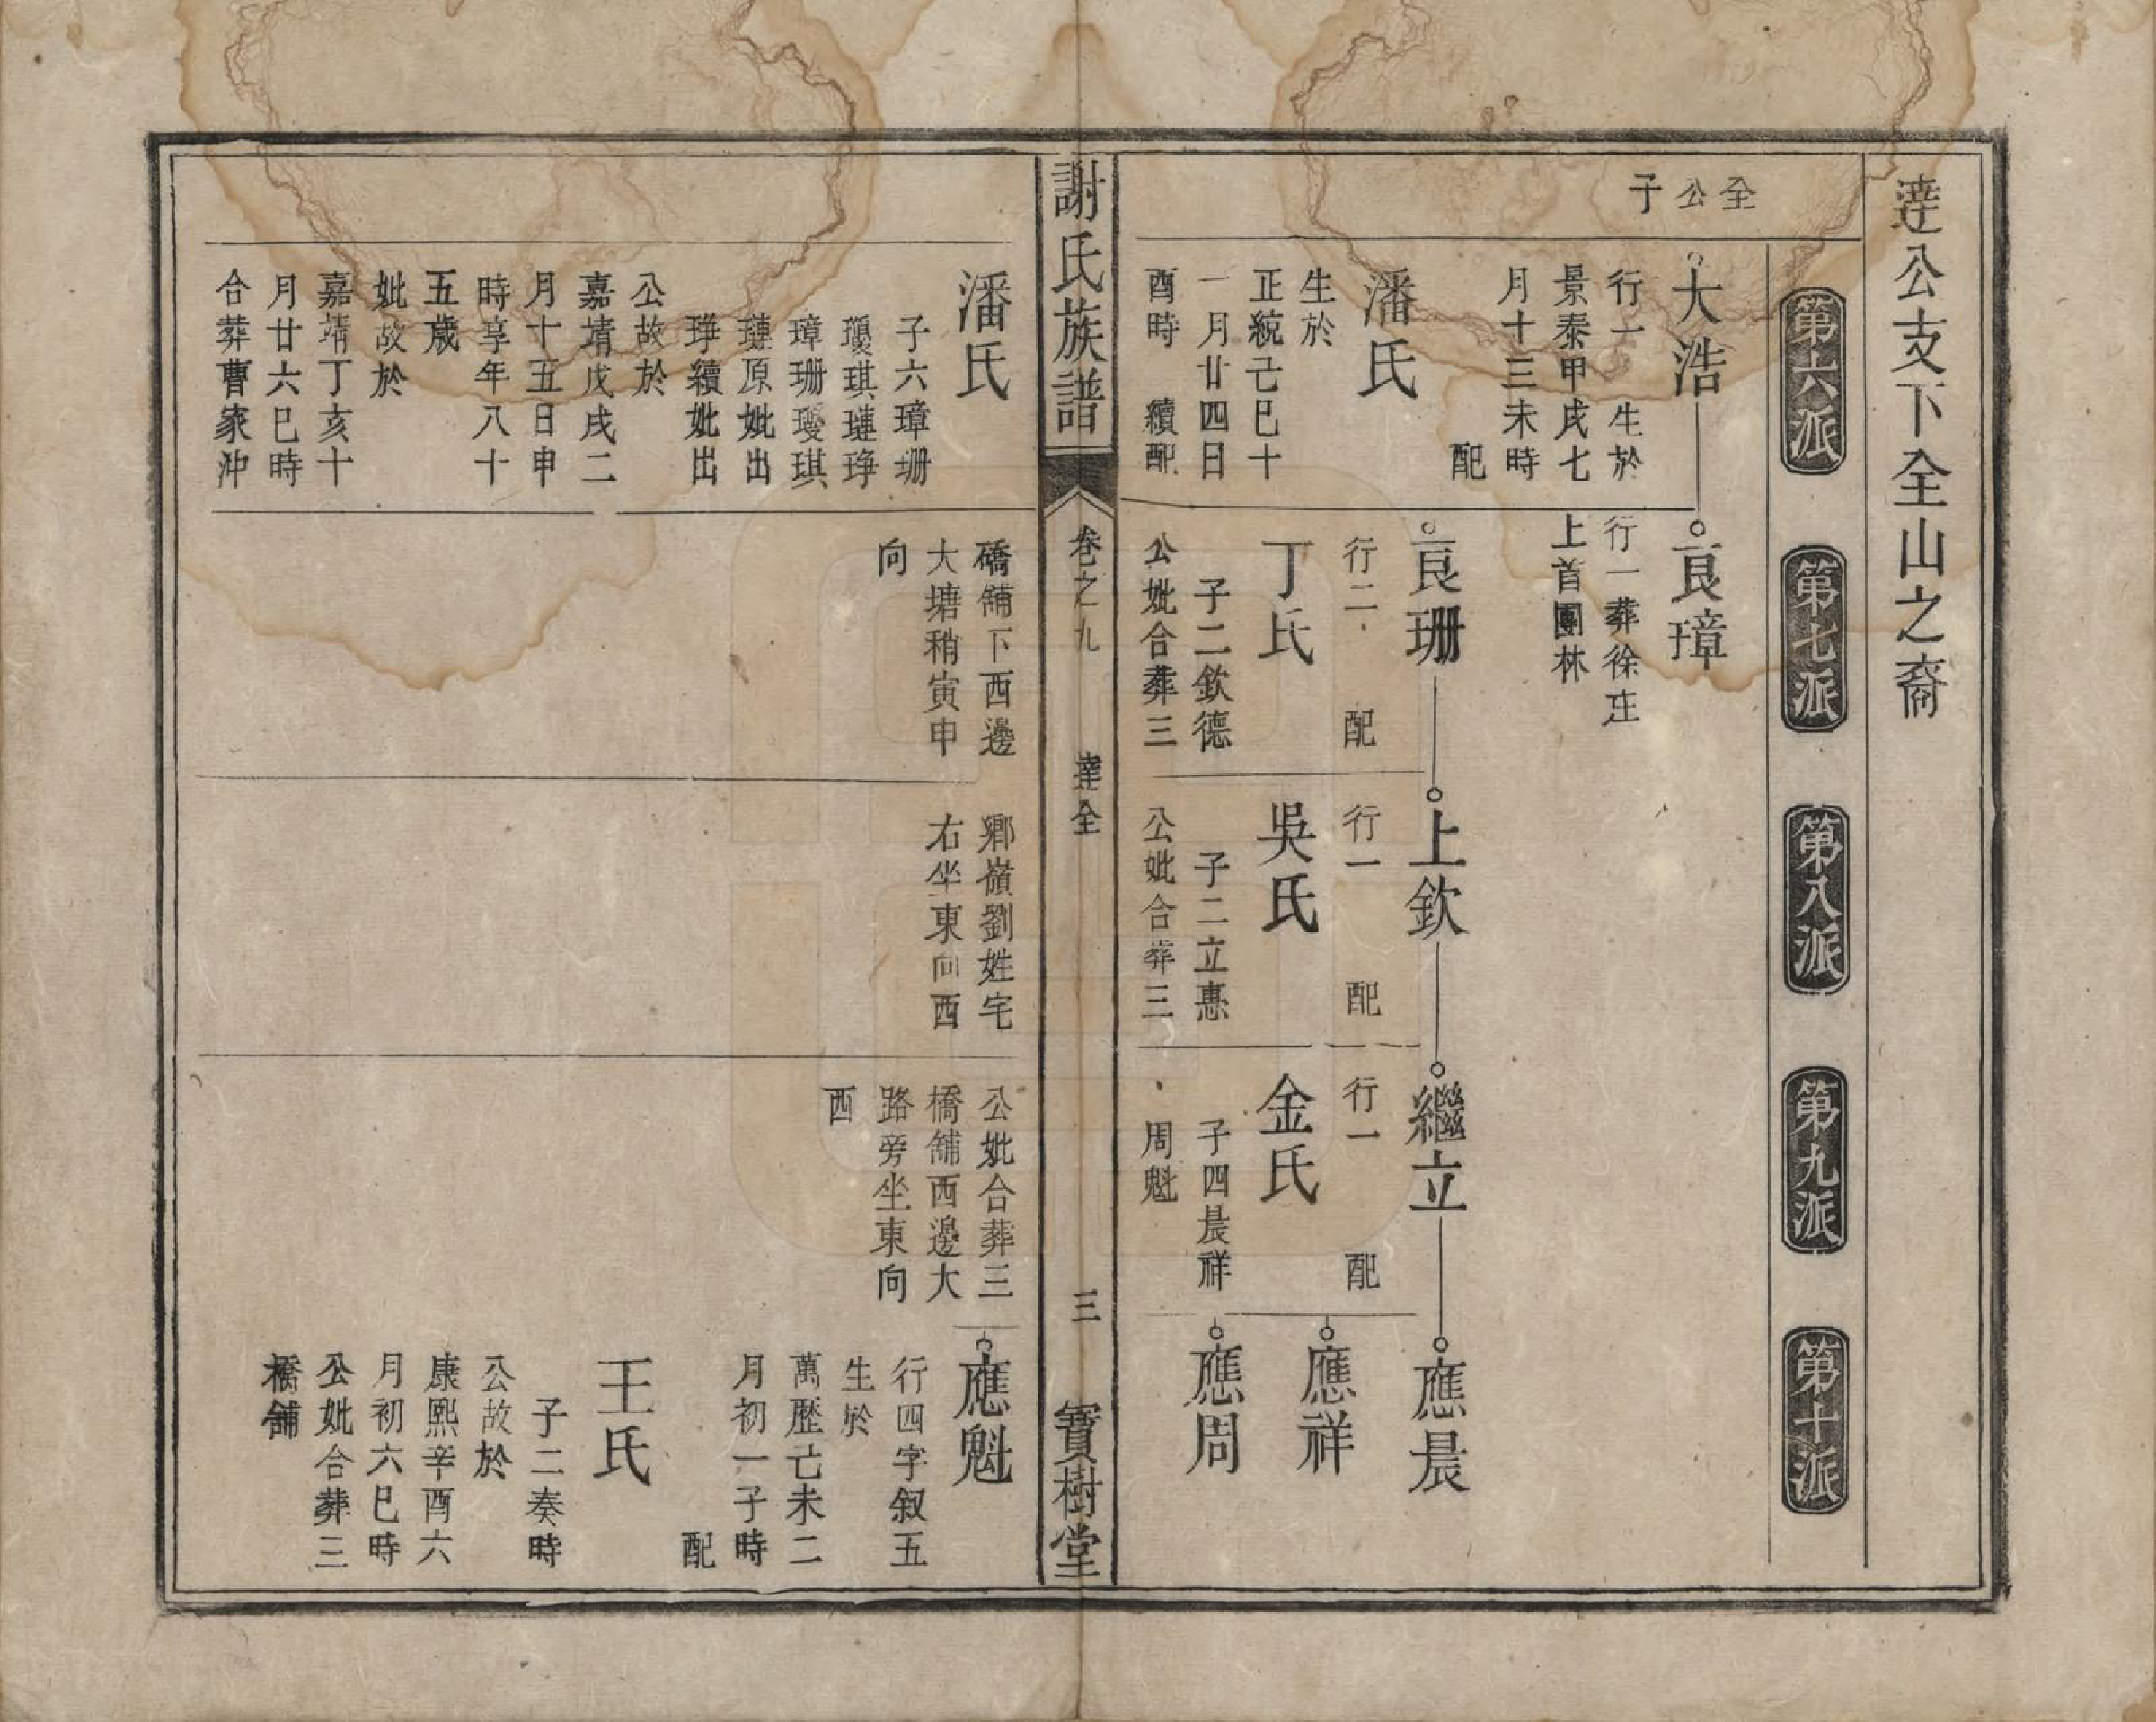 達公支下全山之裔
第六派
第七派
第八派
第九派
第十派
全公子
大浩
行一 生於
景泰甲戌七
月十三未時
配
潘氏
生於
正統己巳十
一月廿四日
酉時 續配
良璋
行一葬徐庄
上首團林
良珊
行二 配
丁氏
子二欽德
公妣合葬三
上欽
行一 配
吳氏
子二立惠
公妣合葬三
繼立
行一 配
金氏
子四晨祥
周魁
應晨
應祥
應周
謝氏族譜
卷之九
達全
三
寶樹堂
潘氏
子六璋珊
瓊琪璉琤
璋珊瓊琪
璉原妣出
琤續妣出
公故於
嘉靖戊戌二
月十五日申
時享年八十
五歲
妣故於
嘉靖丁亥十
月廿六巳時
合葬曹家冲
礄舖下西邊
大塘稍寅申
向
鄉嶺劉姓宅
右坐東向西
公妣合葬三
橋舖西邊大
路旁坐東向
西
應魁
行四字叙五
生於
萬歷己未二
月初一子時
配
王氏
子二奏時
公故於
康熙辛酉六
月初六巳時
公妣合葬三
橋舖